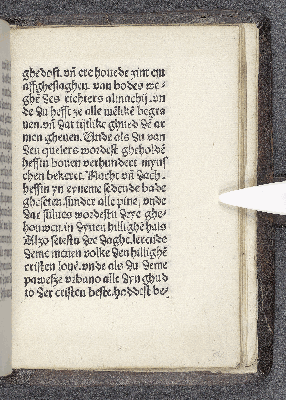 ghedoft. vn̄ ere houede zint em
affgheslaghen. van bodes we-
ghē des richters almachij. vn
de du hefft ze alle wekke begra
uen. vn̄ dat tijtlike ghud dē ar
men gheuen. Unde als du van
den quelers wordest gheholdē
hefftu bouen verhundert mynſ
chen bekeret. Nacht vn̄ dach
heſſtu yn eyneme ſedende bade
gheſeten. ſunder alle pine. vnde
dar ſulues wordestu drye ghe
houwen. in dynen hillighē hals
Alzo leteſtu dre daghe. lerende
deme menen volke den hillighē
criſten louē. vnde als du deme
paweſze vrbano alle dyn ghud
to der criſten beſte. haddeſt be-